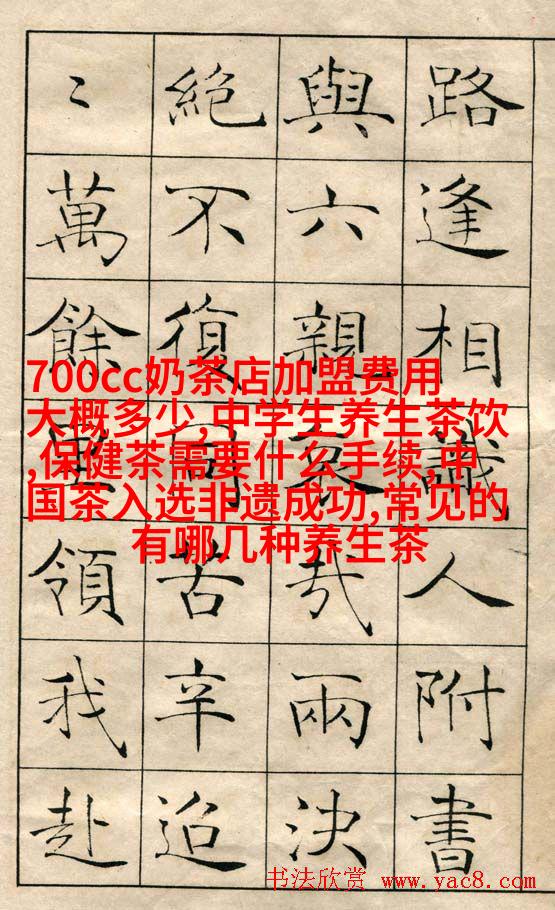 路逢相識人附書
與六親哀哉兩決
絕不復同苦辛迢
〻萬餘里領我赴
700cc奶茶店加盟费用
大概多少,中学生养生茶饮
,保健茶需要什么手续,中
国茶入选非遗成功,常见的
有哪几种养生茶
书法欣赏 www.yac8.com